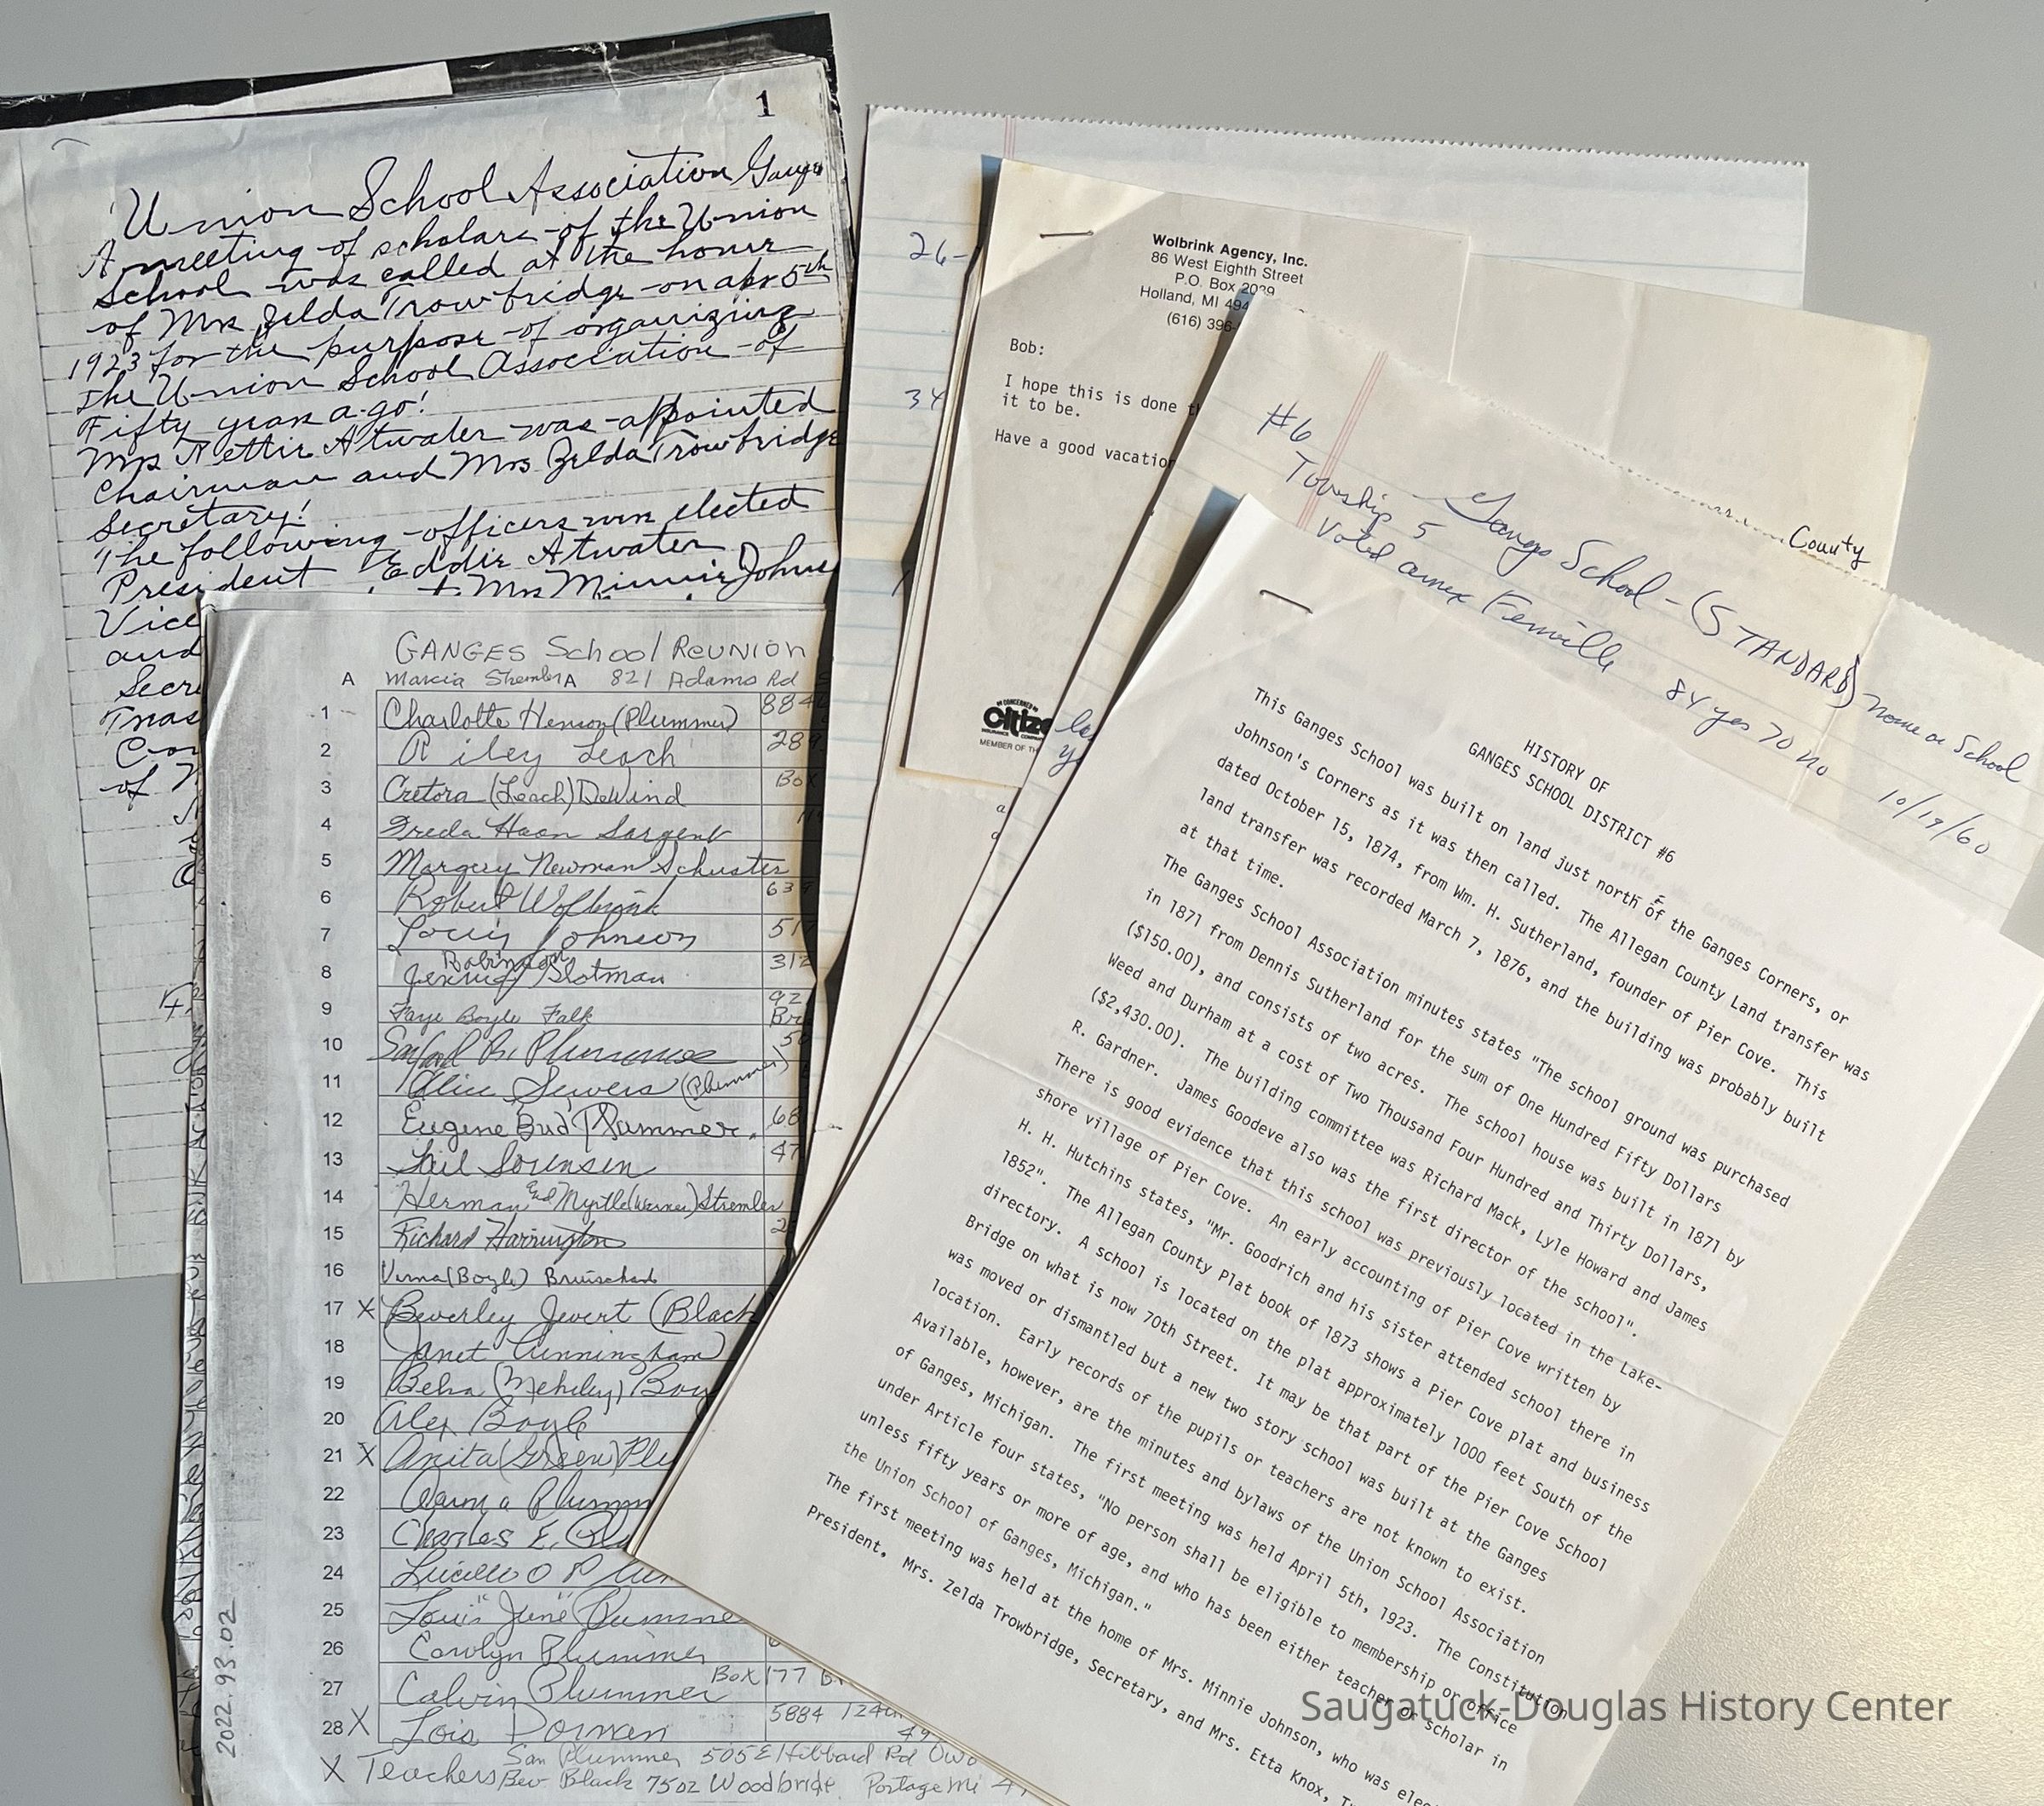 1
Union School Association Ganges
A meeting of scholars of the Union
School was called at the home
of Mrs Zelda Trowbridge on apr 5th
1923 for the purpose of organizing
The Union School Association of
Fifty years ago!
Mrs Nettie Atwater was appointed
Chairman and Mrs Zelda Trowbridge
Secretary!
The following officers were elected
President Eddie Atwater
Vice Mrs Minnie Johns
and
Secre
Treas
Con
of
GANGES School Reunion
A Marcia Stremler A 821 Adams Rd
1 Charlotte Henson (Plummer) 884
2 Riley Leach 289
3 Cretora (Leach) DeWind Box
4 Freda Haan Sargent
5 Margery Newman Schuster
6 Robert Wolbrink 639
7 Louis Johnson 517
8 Jennie Robinson Slotman 312
9 Faye Boyle Falk 92 Bra
10 Sanford B. Plummer 50
11 Alice Sewers (Plummer)
12 Eugene "Bud" Plummer. 68
13 Gail Sorensen 47
14 Herman and Myrtle (Warner) Stremler
15 Richard Harrington 2
16 Verna (Boyle) Bruischard
17 X Beverley Jevert (Black
18 Janet Cunningham
19 Belva (Meheley) Boy
20 Alex Boyle
21 X Anita (Green) Plu
22 Plumm
23 Charles E. Plu
24 Lucille O Plum
25 Louis "June" Plumme
26 Carolyn Plummer
27 Calvin Plummer Box 177
28 X Lois Dorman 5884 124th 49
X Teachers San Plummer 505 E Hibbard Rd Owo
Bev Black 7502 Woodbridge Portage Mi 4
2022.93.02
26-
34
Wolbrink Agency, Inc.
86 West Eighth Street
P.O. Box 2039
Holland, MI 494
(616) 396-
Bob:
I hope this is done th
it to be.
Have a good vacation
THE CONCERNED
Citize
INSURANCE COMPANY
MEMBER OF TH
County
#6 Ganges School - (STANDARD) name on School
Township 5
Voted annex Fennville 84 yes 70 no 10/19/60
HISTORY OF
GANGES SCHOOL DISTRICT #6
This Ganges School was built on land just north of the Ganges Corners, or
Johnson's Corners as it was then called. The Allegan County Land transfer was
dated October 15, 1874, from Wm. H. Sutherland, founder of Pier Cove. This
land transfer was recorded March 7, 1876, and the building was probably built
at that time.
The Ganges School Association minutes states "The school ground was purchased
in 1871 from Dennis Sutherland for the sum of One Hundred Fifty Dollars
($150.00), and consists of two acres. The school house was built in 1871 by
Weed and Durham at a cost of Two Thousand Four Hundred and Thirty Dollars,
($2,430.00). The building committee was Richard Mack, Lyle Howard and James
R. Gardner. James Goodeve also was the first director of the school".
There is good evidence that this school was previously located in the Lake-
shore village of Pier Cove. An early accounting of Pier Cove written by
H. H. Hutchins states, "Mr. Goodrich and his sister attended school there in
1852". The Allegan County Plat book of 1873 shows a Pier Cove plat and business
directory. A school is located on the plat approximately 1000 feet South of the
Bridge on what is now 70th Street. It may be that part of the Pier Cove School
was moved or dismantled but a new two story school was built at the Ganges
location. Early records of the pupils or teachers are not known to exist.
Available, however, are the minutes and bylaws of the Union School Association
of Ganges, Michigan. The first meeting was held April 5th, 1923. The Constitution
under Article four states, "No person shall be eligible to membership or office
unless fifty years or more of age, and who has been either teacher or scholar in
the Union School of Ganges, Michigan."
The first meeting was held at the home of Mrs. Minnie Johnson, who was elec
President, Mrs. Zelda Trowbridge, Secretary, and Mrs. Etta Knox, Tr
Saugatuck-Douglas History Center